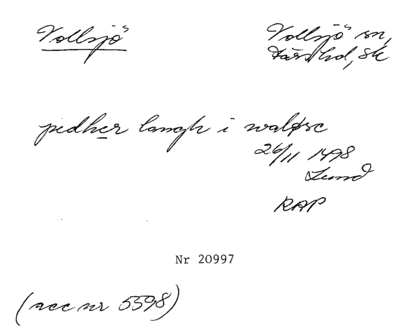 Vollsjö
Vollsjö sn,
Färs hd, Sk
pedher langh i walsøe
26/11 1498
Lund
RAP
Nr 20997
(acc nr 5598)